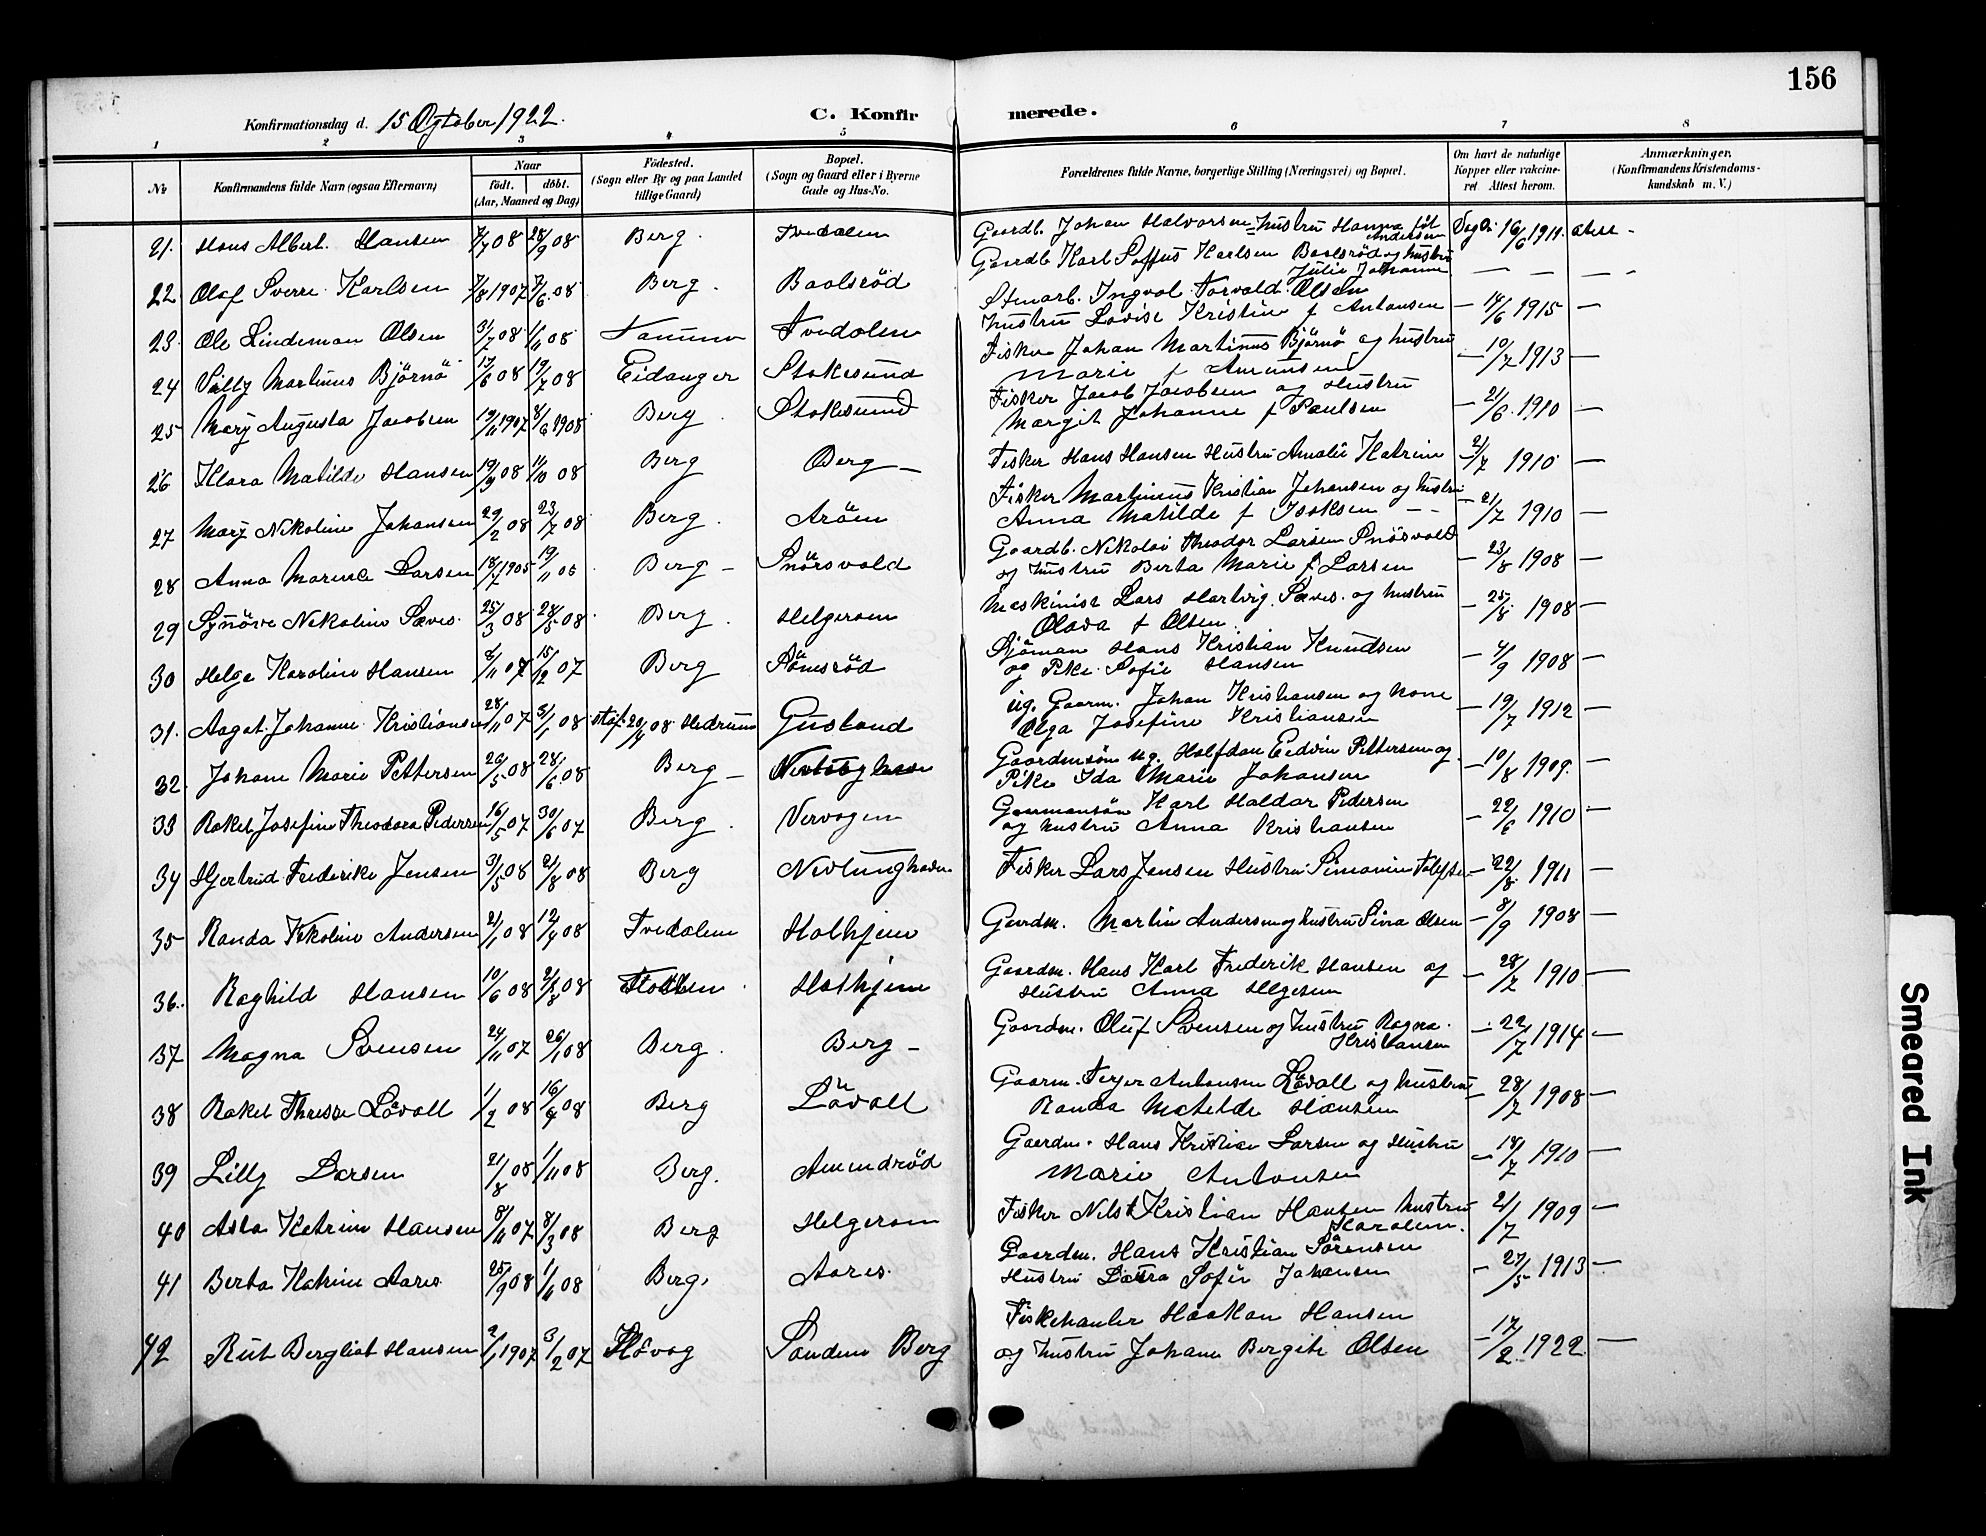 156
Konfirmationsdag d. 15 Ogtober 1922.
C. Konfirmerede.
1 2 3 4 5 6 7 8
No
Konfirmandens fulde Navn (ogsaa Efternavn)
Naar
født. døbt.
(Aar, Maaned og Dag)
Fødested.
(Sogn eller By og paa Landet
tillige Gaard)
Bopæl.
(Sogn og Gaard eller i Byerne
Gade og Hus-No.
Forældrenes fulde Navne, borgerlige Stilling (Næringsvei) og Bopæl.
Om havt de naturlige
Kopper eller vakcine-
ret Attest herom.
Anmærkninger.
(Konfirmandens Kristendoms-
kundskab m. V.)
21. Hans Albert Hansen 7/7 08 28/9 08 Berg. Tvedalen Gaardb. Johan Halvorsen Hustru Hanna føt Andersen 16/6 1911
22 Olaf Sverre Karlsen 7/8 1907 7/6 08 Berg. Baolsröd Gaardb Karl Soffus Karlsen Baolsröd og hustru
Julie Johanne — — —
23. Ole Lindeman Olsen 31/7 08 1/11 08 Tvedalen Stenarb. Ingval Torvald Olsen
Hustru Lovise Kristine f Antonsen — 14/6 1915 —
24 Willy Martinus Björnö 17/6 08 19/7 08 Eidanger Stokesund Fisker Johan Martinus Björnö og hustru
Marie f Amunsen — 10/7 1913 —
25 Mary Augusta Jacobsen 19/11 1907 8/6 1908 Berg. Stokesund Fisker Jacob Jacobsen og Hustru
Margit Johanne f Paulsen — 21/6 1910 —
26 Klara Matilde Hansen 19/9 08 11/10 08 Berg Berg — Fisker Hans Hansen Hustru Amalie Katrine 2/7 1910 —
27 Mary Nikoline Johansen 29/2 08 23/7 08 Berg. Aröen Fisker Martinius Kristian Johansen og hustru
Anna Matilde f Isaksen — 21/7 1910 —
28 Anna Marina Larsen 18/7 1905 19/11 05 Berg — Snörsvold Gaardb. Nikolai Theodor Larsen Snörsvold
og hustru Berta Marie f Larsen — 23/8 1908 —
29 Synöve Nikoline Sæves. 25/3 08 28/5 08 Berg. Helgeroen Maskinist Lars Hartvig Sæves. og hustru
Olava f Olsen — 25/8 1908 —
30 Helga Karoline Hansen 8/11 07 15/12 07 Berg Sömsröd Sjöman Hans Kristian Knudsen
og Pike Sofie Hansen — 4/9 1908 —
31. Aagot Johanne Kristiansen 28/11 07 5/1 08 Hedrum Gusland ug. Gaarm. Johan Kristiansen og kone
Olga Josefine Kristiansen — 19/7 1912 —
32. Johane Marie Pettersen 20/5 08 28/6 08 Berg — Gaardmsön ug. Halfdan Eedvin Pettersen og
Pike Ida Marie Johansen — 10/8 1909.
33 Rakel Josefine Theodora Pedersen 16/5 07 30/6 07 Berg. Nervogen Gaarmansön Karl Haldor Pedersen
og hustru Anna Kristiansen — 22/6 1910 —
34 Hjertrud Frederike Jensen 3/5 08 2/8 08 Berg Nevlunghavn Fisker Lars Jensen Hustru Simonine — 22/8 1911 —
35 Randa Nikoline Andersen 2/1 08 12/4 08 Tvedalen Holhjem Gaardm. Martin Andersen og hustru Sina Olsen — 8/9 1908 —
36. Raghild Hansen 10/6 08 2/8 08 Holhjem Gaardm. Hans Karl Frederik Hansen og
Hustru Anna Helgesen — 28/7 1910 —
37 Magna Svensen 24/11 07 26/1 08 Berg. Berg — Gaardm. Oluf Svensen og hustru Ragna
Kristiansen — 22/7 1914 —
38 Rakel Therese Lövall 1/2 08 16/4 08 Berg Lövall Gaarm. Terjer Antonsen Lövall og hustru
Randa Matelde Hansen — 28/7 1908 —
39 Lilly Larsen 21/8 08 1/11 08 Berg. Amundröd Gaardm. Hans Kristian Larsen og Hustru
Marie Antonsen — 18/7 1910 —
40 Asta Katrine Hansen 8/11 07 8/3 08 Berg Helgeroen Fisker Nils Kristian Hansen hustru
Karoline. 21/7 1909 —
41 Berta Katrine Aares 25/9 08 1/11 08 Berg. Aares. Gaardm. Hans Kristian Sörensen
Hustru Laura Sofie Johansen — 27/5 1913 —
42 Rut Bergliot Hansen 2/1 1907 3/2 07 Hövog Sanden Berg Fiskehanler Haakon Hansen
og hustru Johane Bergite Olsen — 17/2 1922 —
Smeared Ink